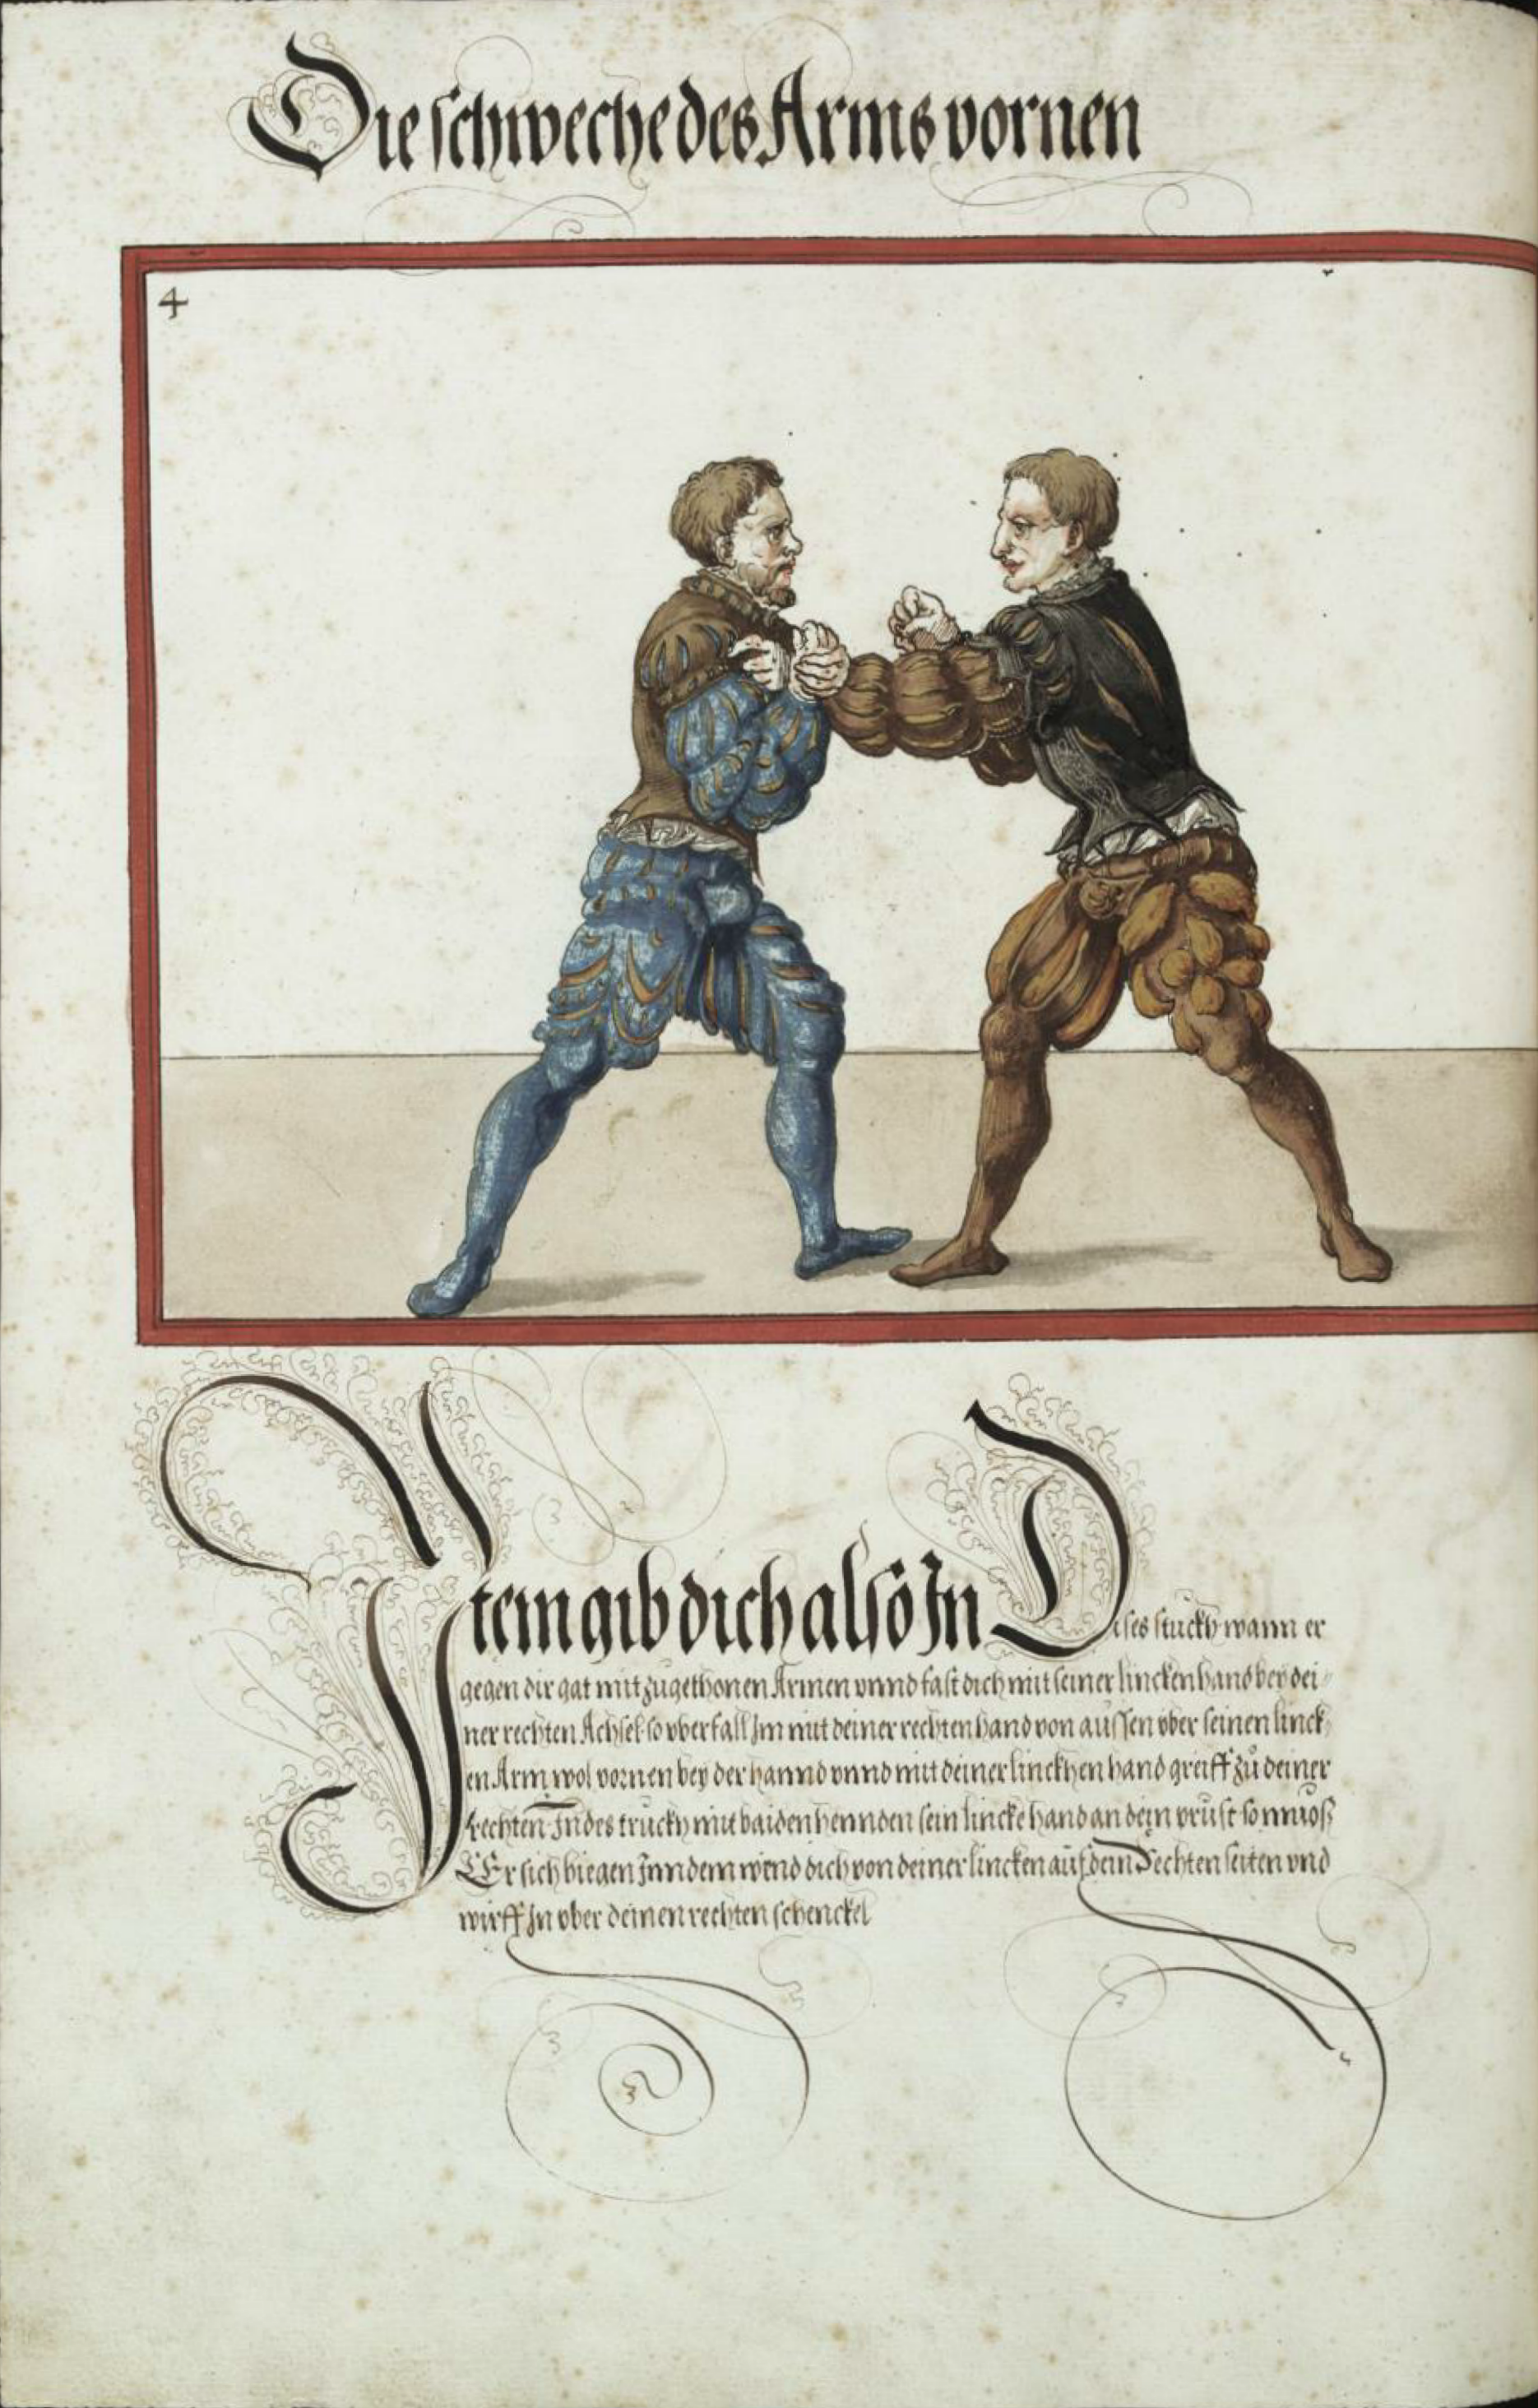 Die schweche des Arms vornen
4
Item gib dich also In Dises stuckh wann er
gegen dir gat mit zugethonen Armen vnnd fast dich mit seiner lincken hand bey dei-
ner rechten Achsel so vberfall Im mit deiner rechten hand von aussen vber seinen linck-
en Arm wol vornen bey der hannd vnnd mit deiner linckhen hand greiff zů deiner
Rechten Indes truckh mit baiden hennden sein lincke hand an dein prust so muoß
Er sich biegen Inn dem wend dich von deiner lincken auf dein Rechten seiten vnd
wirff In vber deinen rechten schenckel